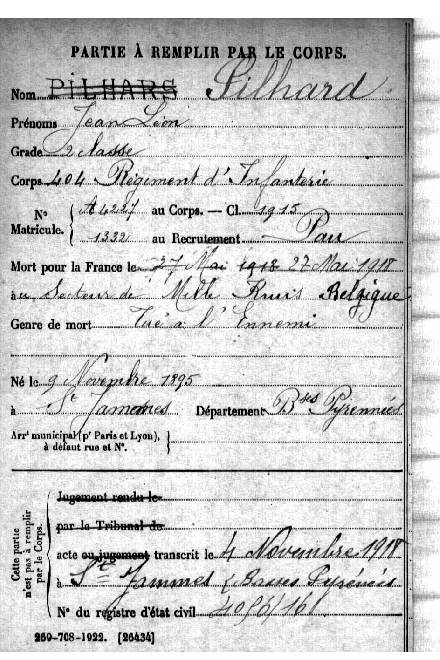 PARTIE À REMPLIR PAR LE CORPS.
Nom PILHARS Pilhard
Prénoms Jean Léon
Grade 2 Classe
Corps 404 Régiment d'Infanterie
N° Matricule. { A 4227 au Corps. — Cl. 1915
1332 au Recrutement Pau
Mort pour la France le 27 Mai 1918 27 Mai 1918
au Secteur de Mille Kruis Belgique
Genre de mort Tué à l'Ennemi
Né le 9 Novembre 1895
à St Jammes Département Bses Pyrennées
Arrt municipal (pr Paris et Lyon), à défaut rue et N°. }
Cette partie n'est pas à remplir par le Corps.
Jugement rendu le
par le Tribunal de
acte ou jugement transcrit le 4 Novembre 1918
à St Jammes (Basses Pyrénées
N° du registre d'état civil
269-708-1922. [26434]